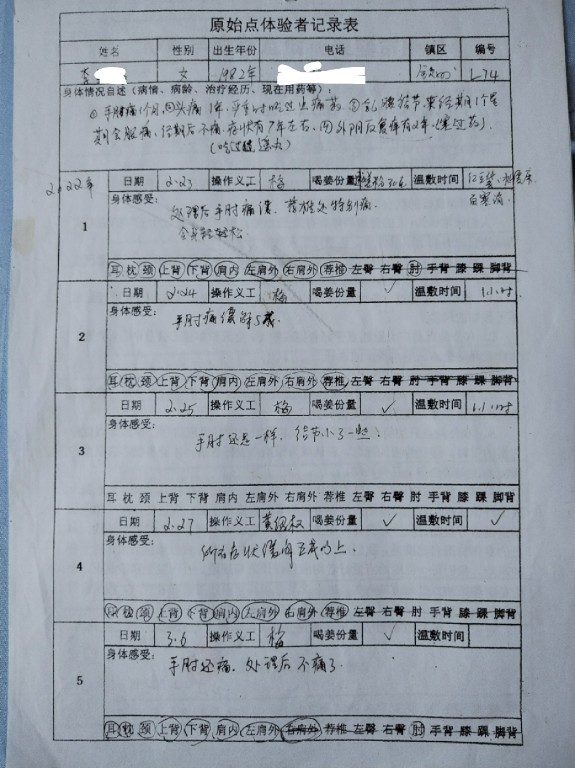 原始点体验者记录表
姓名 性别 出生年份 电话 镇区 编号
李 女 1982年 L74
身体情况自述（病情、病龄、治疗经历、现在用药等）：
①手肘痛1个月,②头痛1年,严重时吃过止痛药.
后不痛.症状有7年左右,④外阴反复痒有2年
2022年
日期 2.23 操作义工 梅 喝姜份量 温敷时间
1
身体感受：
处理后手肘痛缓,荐椎处特别痛.
全身轻轻松.
耳 枕 颈 上背 下背 肩内 左肩外 右肩外 荐椎 左臀 右臀 肘 手背 膝 踝 脚背
日期 2.24 操作义工 梅 喝姜份量 ✓ 温敷时间
2
身体感受：
手肘痛缓解5成.
耳 枕 颈 上背 下背 肩内 左肩外 右肩外 荐椎 左臀 右臀 肘 手背 膝 踝 脚背
日期 2.25 操作义工 梅 喝姜份量 ✓ 温敷时间
3
身体感受：
手肘还是一样,结节小了一些.
耳 枕 颈 上背 下背 肩内 左肩外 右肩外 荐椎 左臀 右臀 肘 手背 膝 踝 脚背
日期 2.27 操作义工 喝姜份量 ✓ 温敷时间 ✓
4
身体感受：
所有症状缓解五成以上.
耳 枕 颈 上背 下背 肩内 左肩外 右肩外 荐椎 左臀 右臀 肘 手背 膝 踝 脚背
日期 3.6 操作义工 梅 喝姜份量 ✓ 温敷时间
5
身体感受：
手肘还痛,处理后不痛了.
耳 枕 颈 上背 下背 肩内 左肩外 右肩外 荐椎 左臀 右臀 肘 手背 膝 踝 脚背